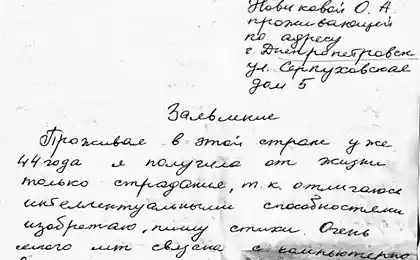 Новиковой О. А.
проживающей
по адресу
г. Днепропетровск
ул. Серпуховская
дом 5
Заявление
Проживая в этой стране уже
44 года я получила от жизни
только страдание, т.к. отличаюсь
интеллектуальными способностями
изобретаю, пишу стихи. Очень
много лет связана с компьютерно